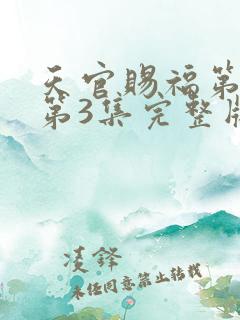 天官赐福第
第3集完整版
凌铎
未经同意禁止转载